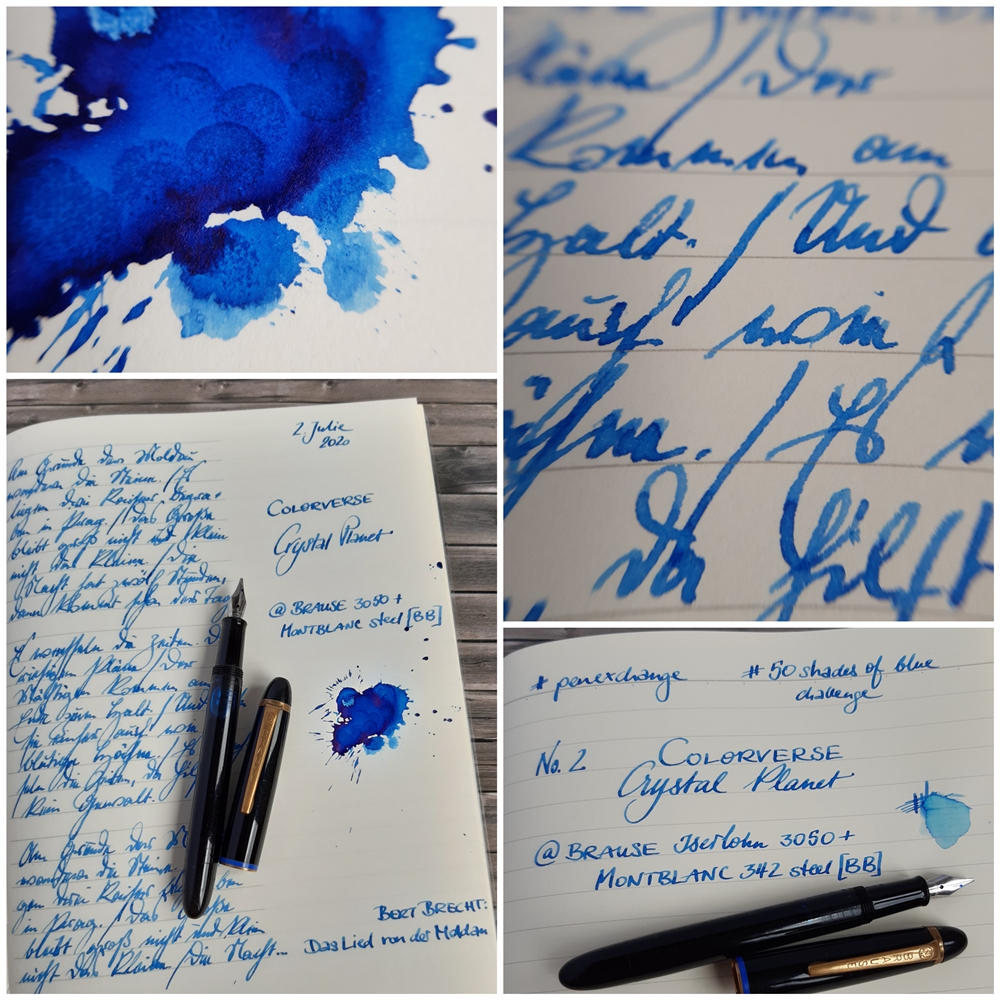 Pläne / Der
Kommen am
Halt. / Und
auch wie
Hähne. / Es
Da hilft
2. Julie
2020
Am Grunde der Moldau
wandern die Steine. / Es
liegen drei Kaiser begra-
ben in Prag. / Das Große
bleibt groß nicht und klein
nicht das Kleine. / Die
Nacht hat zwölf Stunden,
dann kommt schon der Tag
Es wechseln die Zeiten. D
riesigen Pläne / Der
Mächtigen kommen am
Ende zum Halt. / Und
auch wie
blutige Hähne. / Es
die Zeiten, da hilf
kein Gewalt.
Am Grunde der Mo
wandern die Steine.
gen drei Kaiser ben
in Prag. / Das Große
bleibt groß nicht und klein
nicht das Kleine. / Die Nacht...
COLORVERSE
Crystal Planet
@ BRAUSE 3050 +
MONTBLANC steel [BB]
BERT BRECHT:
Das Lied von der Moldau
# penexchange
# 50 shades of blue
challenge
No. 2 COLORVERSE
Crystal Planet
@ BRAUSE Iserlohn 3050 +
MONTBLANC 342 steel [BB]
BRAUSE